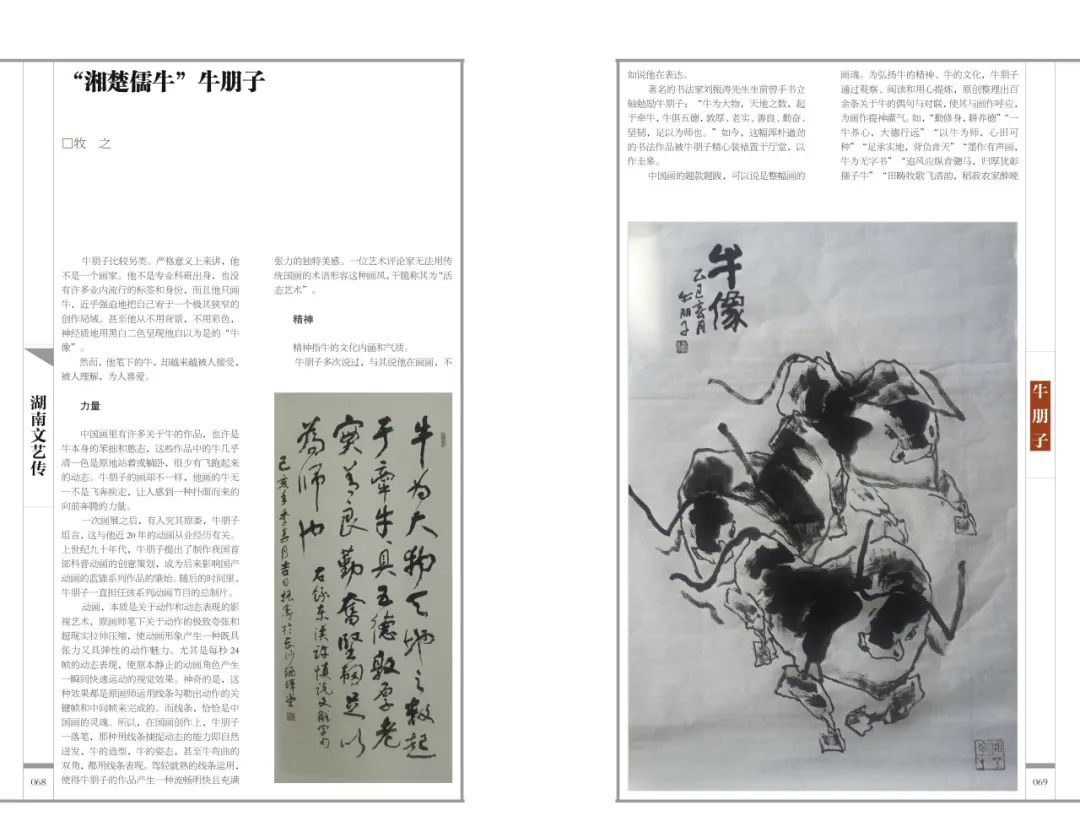 “湘楚儒牛”牛朋子
□牧 之
牛朋子比较另类。严格意义上来讲，他
不是一个画家。他不是专业科班出身，也没
有许多业内流行的标签和身份，而且他只画
牛，近乎强迫地把自己宥于一个极其狭窄的
创作局域。甚至他从不用背景，不用彩色，
神经质地用黑白二色呈现他自以为是的“牛
像”。
然而，他笔下的牛，却越来越被人接受，
被人理解，为人喜爱。
力量
中国画里有许多关于牛的作品，也许是
牛本身的笨拙和憨态，这些作品中的牛几乎
清一色是原地站着或躺卧，很少有飞跑起来
的动态。牛朋子的画却不一样，他画的牛无
一不是飞奔疾走，让人感到一种扑面而来的
向前奔腾的力量。
一次画展之后，有人究其原委，牛朋子
坦言，这与他近 20 年的动画从业经历有关。
上世纪九十年代，牛朋子提出了制作我国首
部科普动画的创意策划，成为后来影响国产
动画的蓝猫系列作品的肇始。随后的时间里，
牛朋子一直担任该系列动画节目的总制片。
动画，本质是关于动作和动态表现的影
视艺术，原画师笔下关于动作的极致夸张和
超现实拉伸压缩，使动画形象产生一种既具
张力又具弹性的动作魅力。尤其是每秒 24
帧的动态表现，使原本静止的动画角色产生
一瞬间快速运动的视觉效果。神奇的是，这
种效果都是原画师运用线条勾勒出动作的关
键帧和中间帧来完成的。而线条，恰恰是中
国画的灵魂。所以，在国画创作上，牛朋子
一落笔，那种用线条捕捉动态的能力即自然
迸发，牛的造型，牛的姿态，甚至牛弯曲的
双角，都用线条表现。驾轻就熟的线条运用，
使得牛朋子的作品产生一种流畅明快且充满
张力的独特美感。一位艺术评论家无法用传
统国画的术语形容这种画风，干脆称其为“活
态艺术”。
精神
精神指牛的文化内涵和气质。
牛朋子多次说过，与其说他在画画，不
牛为大物天地之数起
于牵牛牛具五德敦厚老
实善良勤奋坚韧足以
为师也
右录东汉许慎说文解字句
己亥年季嘉月吉日振涛于长沙
湖南文艺传
068
如说他在表达。
著名的书法家刘振涛先生生前曾手书立
轴勉励牛朋子：“牛为大物，天地之数，起
于牵牛，牛俱五德，敦厚、老实、善良、勤奋、
坚韧，足以为师也。”如今，这幅浑朴遒劲
的书法作品被牛朋子精心装裱置于厅堂，以
作圭皋。
中国画的题款题跋，可以说是整幅画的
画魂。为弘扬牛的精神、牛的文化，牛朋子
通过观察、阅读和用心提炼，原创整理出百
余条关于牛的偶句与对联，使其与画作呼应，
为画作提神灌气。如，“勤修身，耕养德”“一
牛养心，大德行远”“以牛为师，心田可
种”“足承实地，背负青天”“墨作有声画，
牛为无字书”“追风应纵青骢马，归厚犹彰
犏子牛”“田畴牧歌飞清韵，稻菽农家醉晚
牛像
乙巳亥月
牛朋子
牛朋子
069